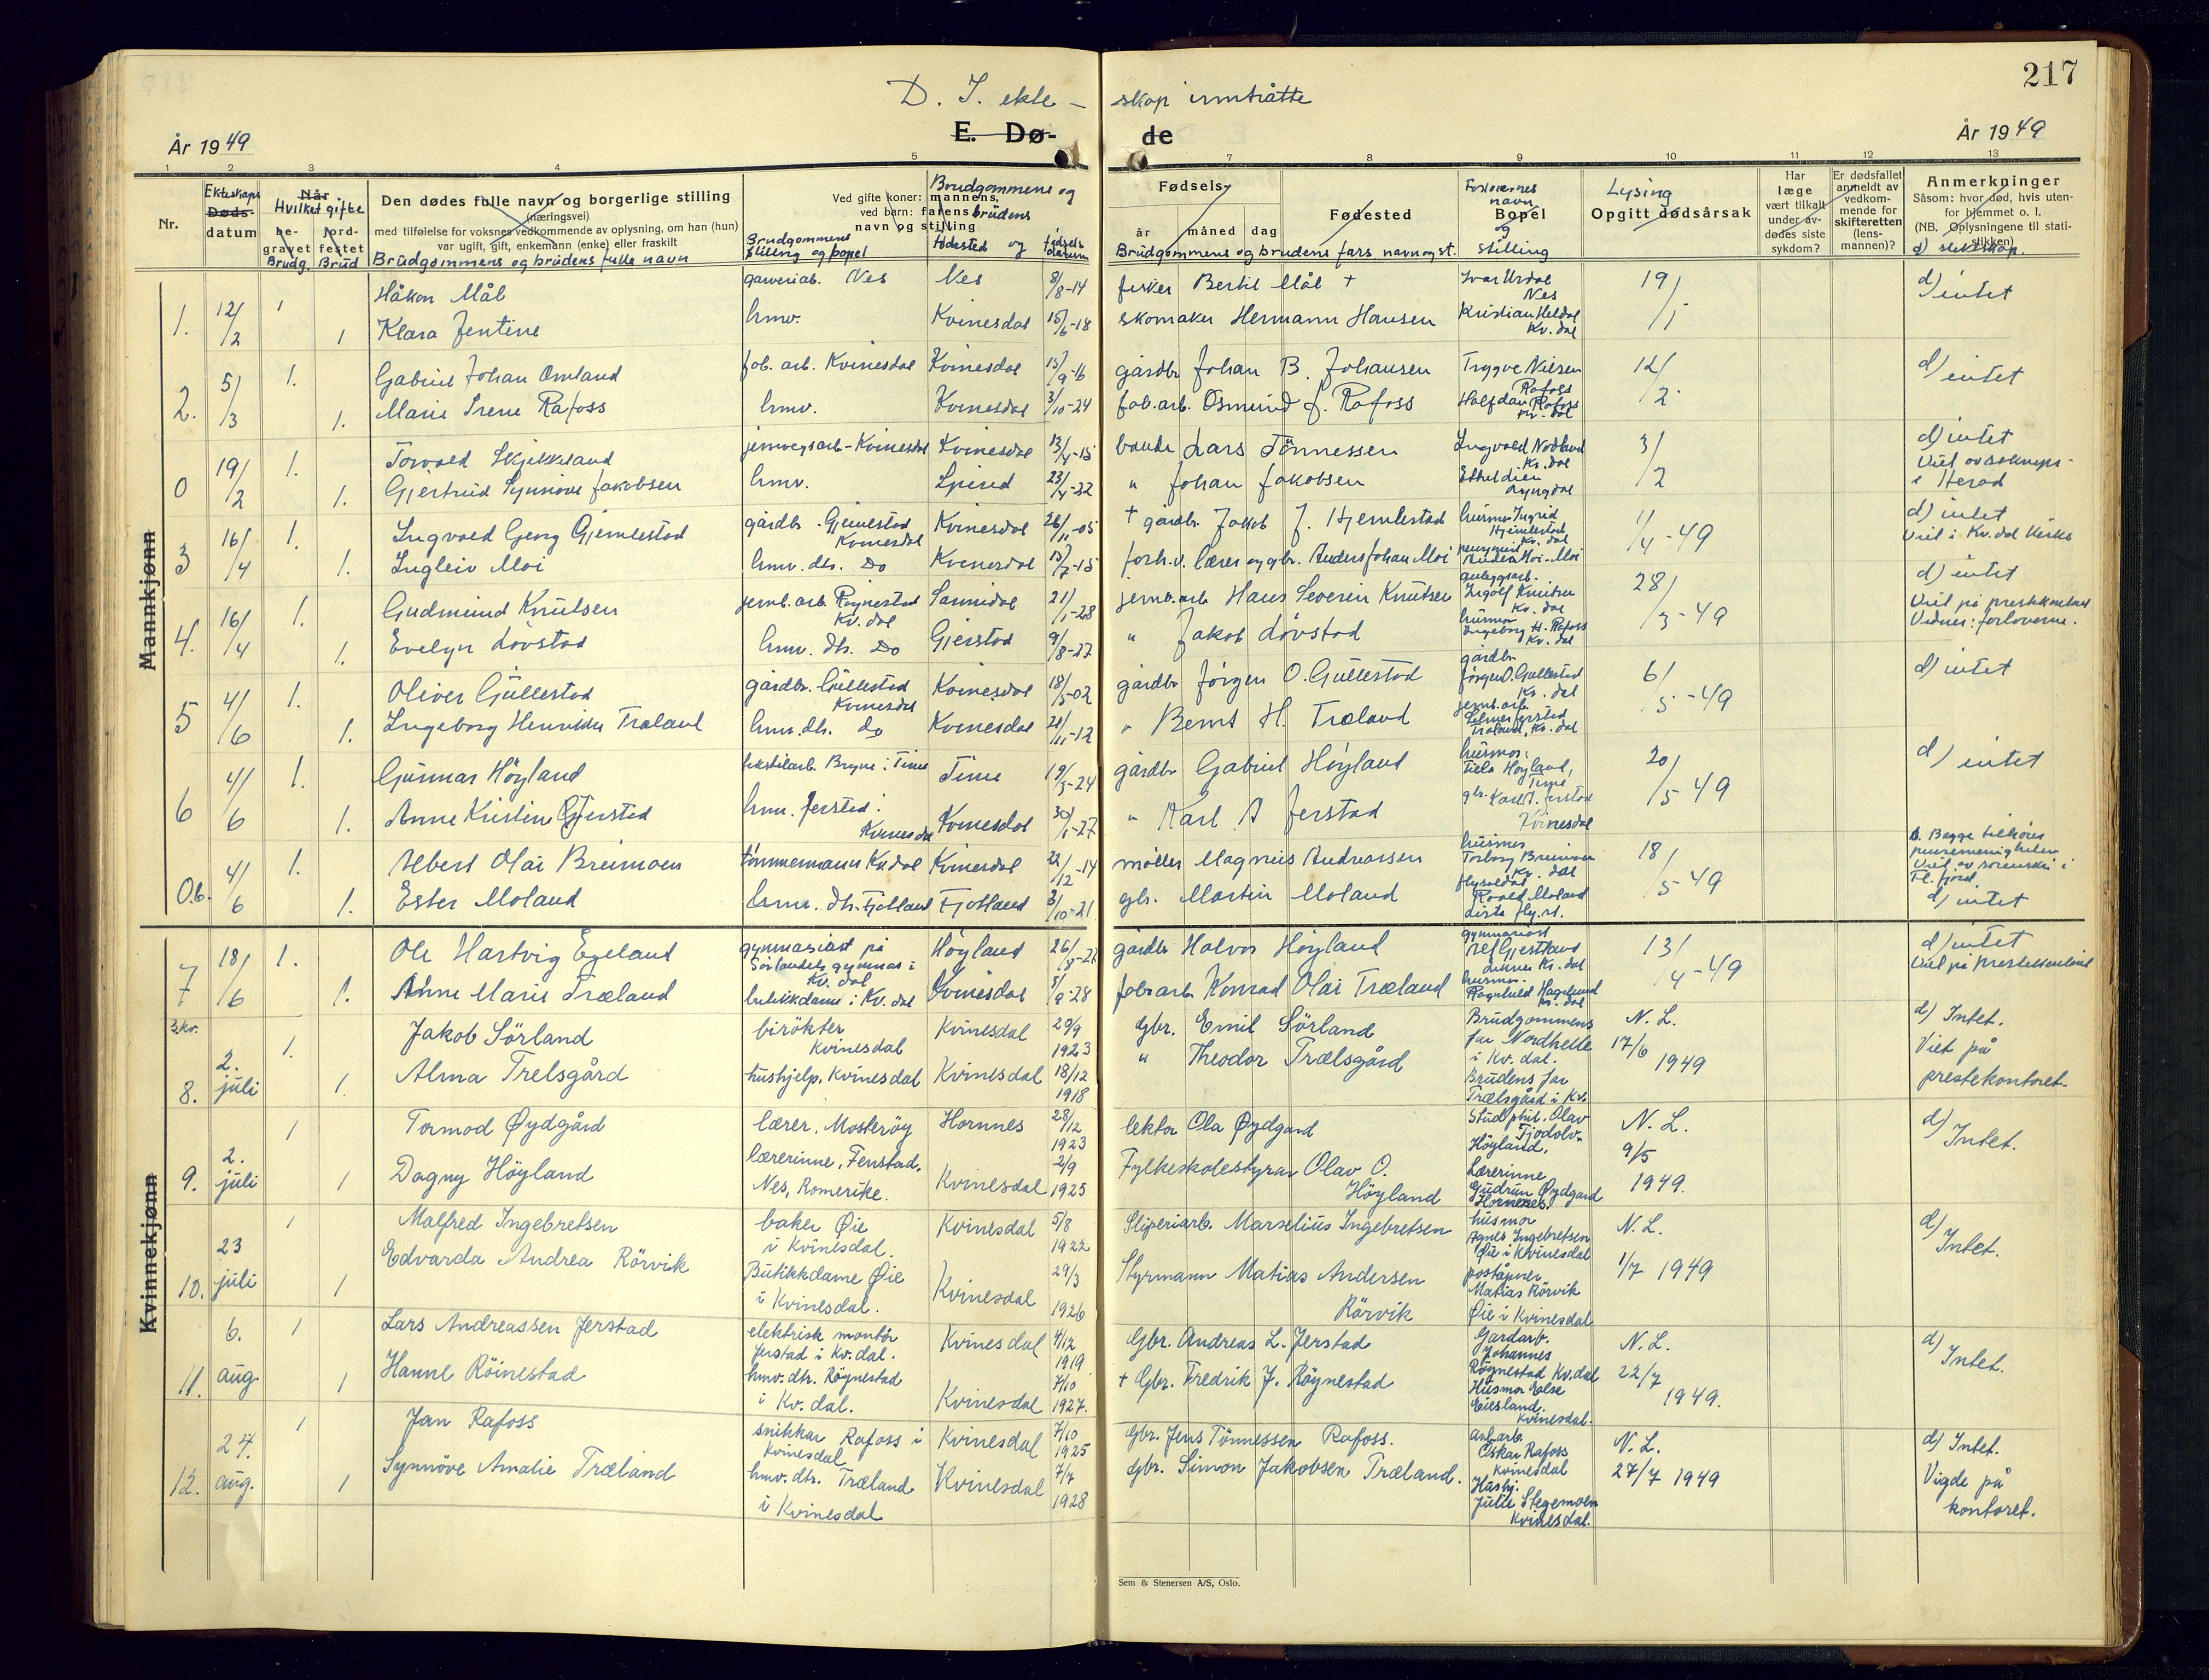 217
D. I. ekte - skap inntrådte
E. Dø- de
År 1949
År 1949
1 2 3 4 5 7 8 9 10 11 12 13
Nr.
Ekteskaps
Døds-
datum
Når
Hvilket gifte
be-
gravet
jord-
festet
Brudg. Brud
Den dødes fulle navn og borgerlige stilling
(næringsvei)
med tilføielse for voksnes vedkommende av oplysning, om han (hun)
var ugift, gift, enkemann (enke) eller fraskilt
Brudgommens og brudens fulle navn
Brudgommens og
Ved gifte koner: mannens,
ved barn: farens brudens
navn og stilling
Brudgommens
stilling og bopel
fødested og fødsels datum
Fødsels
år måned dag
Fødested
Brudgommens og brudens fars navn og st.
Forlovernes
navn
Bopel
og
stilling
Lysing
Opgitt dødsårsak
Har
læge
vært tilkalt
under av-
dødes siste
sykdom?
Er dødsfallet
anmeldt av
vedkom-
mende for
skifteretten
(lens-
mannen)?
Anmerkninger
Såsom: hvor død, hvis uten-
for hjemmet o. l.
(NB. Oplysningene til stati-
stikken)
d) slektskap.
Mannkjønn
1. 12/2 1 Håkon Mål garveriab. Nes Nes 8/8-14 fisker Bertil Mål † Ivar Urdal Nes 19/1 d) intet
1 Klara Jentine hmv. Kvinesdal 15/6-18 skomaker Hermann Hansen Kristian Heldal Kv. dal
2. 5/3 1. Gabriel Johan Omland fab. arb. Kvinesdal Kvinesdal 15/9-16 gårdbr Johan B. Johansen Trygve Nilsen Rafoss 12/2 d) intet
1. Marie Irene Rafoss hmv. Kvinesdal 3/10-24 fab.arb. Osmund J. Rafoss Halfdan Rafoss Kv. dal
0 19/2 1. Torvald Skjekkeland jernvegsarb- Kvinesdal Kvinesdal 13/4-15 bonde Lars Tönnessen Ingvald Nodland Kv. dal 3/2 d) intet
1. Gjertrud Synnöve Jakobsen hmv. Spind 23/4-22 " Johan Jakobsen Lyngdal i Herad
3 16/4 1. Ingvald Georg Gjemlestad gårdbr. Gjemlestad Kvinesdal Kvinesdal 26/11-05 † gårdbr. Jakob J. Hjemlestad husmor Ingrid Hjemlestad Kv. dal 1/4-49 d) intet
Viet i Kv. dal kirke
1. Ingleiv Moi hmv. dtr. Do Kvinesdal 15/7-15 forh.v. lærer og gbr. Anders Johan Moi
4. 16/4 1. Gudmund Knutsen jernb.arb. Röynestad Kv. dal Sannidal 21/1-28 jernb.arb Hans Severin Knutsen anleggsarb. Ingolf Knutsen Kv. dal 28/3-49 d) intet
Viet på prestekontoret
Vidner: forloverne.
1. Evelyn Lövstad hmv. dtr. Do Gjerstad 9/8-27 " Jakob Lövstad husmor Ingeborg H. Rafoss Kv. dal
5 4/6 1. Oliver Gullestad gårdbr. Gullestad Kvinesdal Kvinesdal 18/5-02 gårdbr Jörgen O. Gullestad gårdbr. Jörgen O. Gullestad Kv. dal 6/5-49 d) intet
1. Ingeborg Henrikke Træland hmv. dtr. do Kvinesdal 21/11-12 " Bernt H. Træland jernb.arb. Træland, Kv. dal
6 4/6 1. Gunnar Höyland tekstilarb. Bryne i Time Time 19/3-24 gårdbr Gabriel Höyland husmor Höyland, Time 20/5-49 d) intet
1. Anne Kristine Gjerstad hmv. Jerstad i Kvinesdal Kvinesdal 30/1-27 " Karl A Jerstad gbr. Karl A. Jerstad Kvinesdal
0.b. 4/6 1. Albert Olai Breimoen tömmermann Kv. dal Kvinesdal 22/12-14 möller Magnus Andreassen husmor Torborg Breimoen Kv. dal 18/5-49 b. Begge tilhörer
pinsemenigheten
Viet av sorenskr. i
Fl. fjord
1. Ester Moland hmv. dtr. Fjotland Fjotland 3/10-21 gbr. Martin Moland flysoldat Moland Lista fly.st. d) intet
Kvinnekjønn
7 18/6 1. Ole Hartvig Egeland gymnasiast på Sörlandets gymnas i Kv. dal Höyland 26/8-21 gårdbr Halvor Höyland gymnasiast Liknes Kv. dal 13/4-49 d) intet
Viet på prestekontoret
1. Anne Marie Træland butikkdame i Kv. dal Kvinesdal 5/9-28 fab. arb Konrad Olai Træland husmor Ragnhild Hagelund Kv. dal
3.kv.
8. 2. juli 1. Jakob Sörland birökter Kvinesdal Kvinesdal 20/9 1923 Gbr. Emil Sörland Brudgommens far Nordhelle i Kv. dal. N. L. 17/6 1949 d) Intet.
Viet på
prestekontoret.
1. Alma Trelsgård hushjelp. Kvinesdal Kvinesdal 18/12 1918 " Theodor Trælsgård Brudens far Trælsgård i Kv.
9. 2. juli 1 Tormod Øydgård lærer, Mosteröy Hornnes 28/12 1923 lektor Ola Øydgard Stud. phil. Olav Tjodolv Höyland. N. L. 9/5 1949. d) Intet.
1 Dagny Höyland lærerinne, Fenstad, Nes, Romerike. Kvinesdal 2/9 1925 Fylkesskolestyrar Olav O. Höyland Lærerinne Gudrun Øydgard Hornnes.
10. 23 juli 1 Malfred Ingebretsen baker Øie i Kvinesdal. Kvinesdal 5/8 1922 Sliperiarb. Marselius Ingebretsen husmor Agnes Ingebretsen Øie i Kvinesdal N. L. 1/7 1949 d) Intet.
1 Edvarda Andrea Rörvik Butikkdame Øie i Kvinesdal. Kvinesdal 29/3 1926 Styrmann Matias Andersen Rörvik poståpner Matias Rörvik Øie i Kvinesdal
11. 6. aug. 1 Lars Andreassen Jerstad elektrisk montör Jerstad i Kv. dal. Kvinesdal 4/12 1919 Gbr. Andreas L. Jerstad Gardarb. Johannes Röynestad Kv.dal N. L. 22/7 1949. d) Intet.
1 Hanne Röinestad hmv. dtr. Röynestad i Kv. dal. Kvinesdal 7/10 1927. † Gbr. Fredrik J. Röynestad Husmor Eiesland. Kvinesdal.
12. 27. aug. 1 Jan Rafoss snikkar Rafoss i Kvinesdal Kvinesdal 7/10 1925 Gbr. Jens Tönnessen Rafoss. anl.arb. Oskar Rafoss Kvinesdal N. L. 27/7 1949 d) Intet.
Vigde på
kontoret.
1 Synnöve Amalie Træland hmv. dtr. Træland i Kvinesdal Kvinesdal 7/7 1928 Gbr. Simon Jakobsen Træland. Hushj. Julie Stegemoen Kvinesdal.
Sem & Stenersen A/S, Oslo.